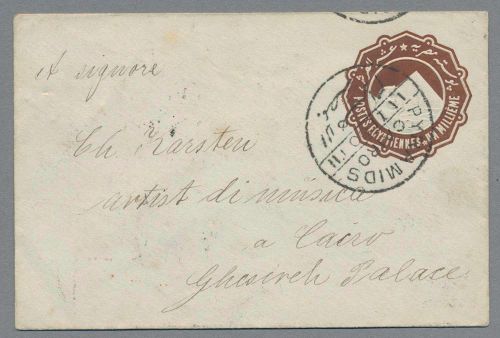 A signore
Ch Karsten
artist di música
a Cairo
Ghesireh Palace
POSTES EGYPTIENNES
MILLIEME
PY
MIDS